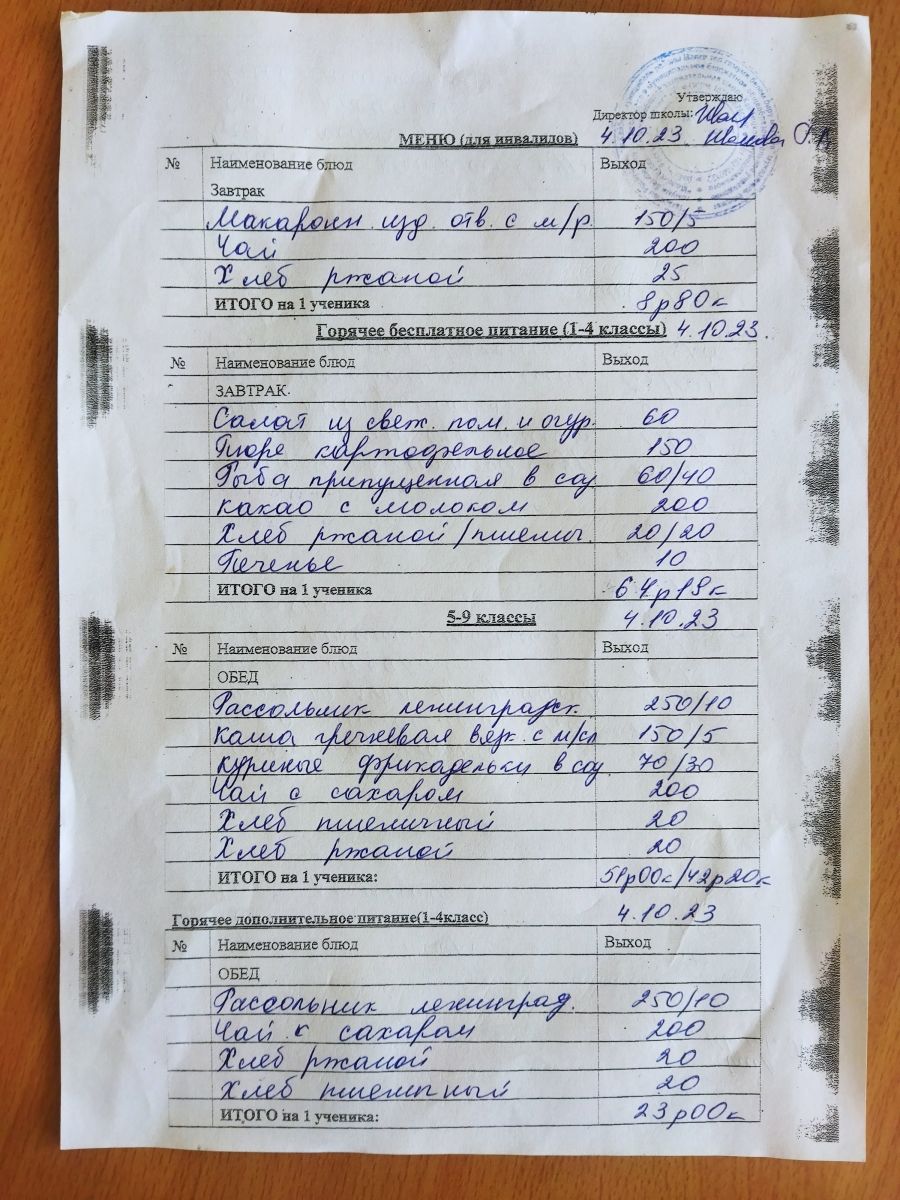 Утверждаю
Директор школы:
МЕНЮ (для инвалидов) 4.10.23
№ Наименование блюд Выход
Завтрак
Макарон. изд. отв. с м/р. 150/5
Чай 200
Хлеб ржаной 25
ИТОГО на 1 ученика 8р80к
Горячее бесплатное питание (1-4 классы) 4.10.23.
№ Наименование блюд Выход
ЗАВТРАК.
Салат из свеж. пом. и огур. 60
Пюре картофельное 150
Рыба припущенная в соу 60/40
какао с молоком 200
Хлеб ржаной/пшенич. 20/20
Печенье 10
ИТОГО на 1 ученика 64р19к
5-9 классы 4.10.23
№ Наименование блюд Выход
ОБЕД
Рассольник ленинградск 250/10
каша гречневая вязк. с м/сл 150/5
куриные фрикадельки в соу. 70/30
Чай с сахаром 200
Хлеб пшеничный 20
Хлеб ржаной 20
ИТОГО на 1 ученика: 51р00к/42р20к
Горячее дополнительное питание(1-4класс) 4.10.23
№ Наименование блюд Выход
ОБЕД
Рассольник ленинград. 250/10
Чай с сахаром 200
Хлеб ржаной 20
Хлеб пшеничный 20
ИТОГО на 1 ученика: 23р00к